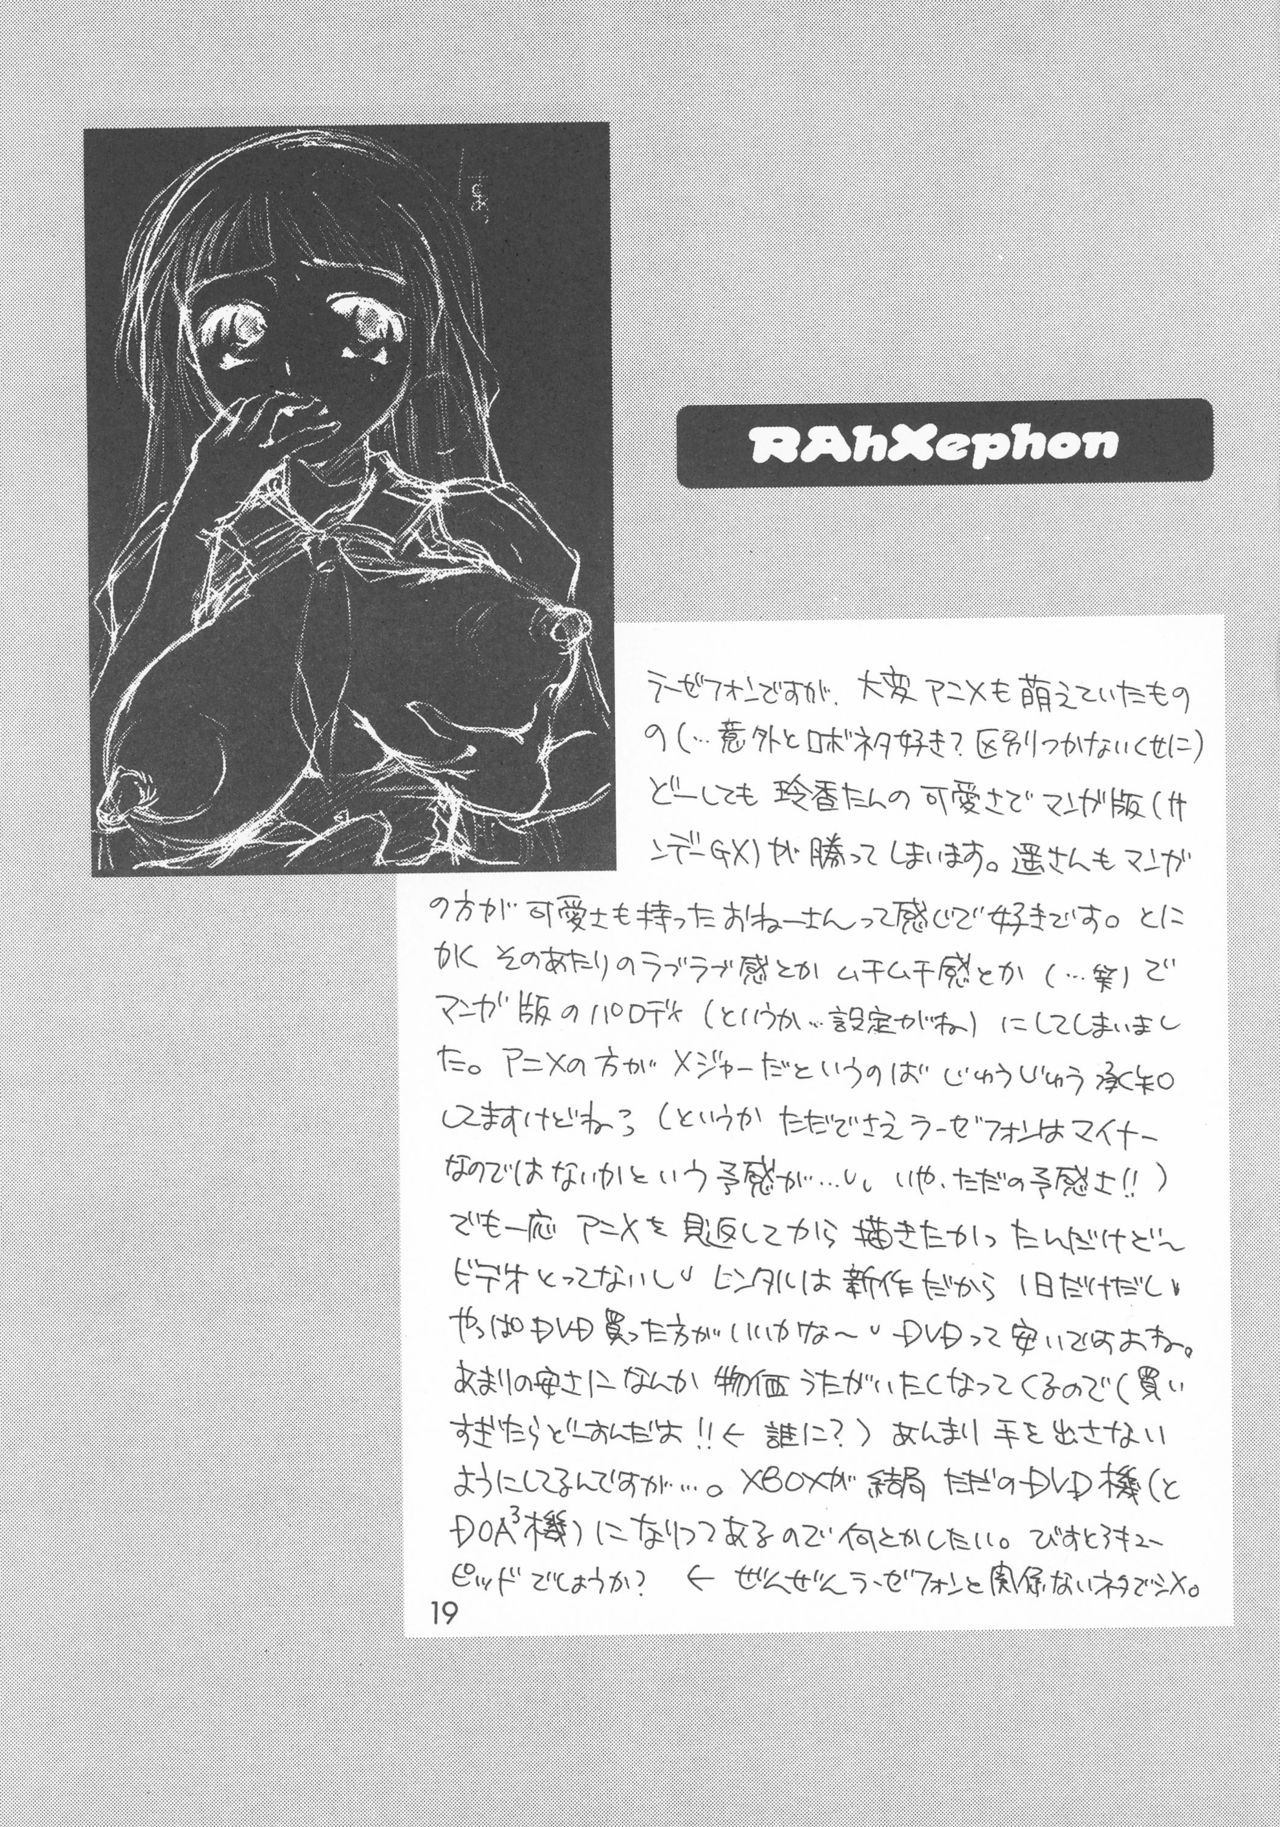 RAhXephon
ラーゼフォンですが、大変アニメも萌えていたもの
の(…意外とロボネタ好き?区別つかないくせに)
どーしても玲香たんの可愛さでマンガ版(サ
ンデーGX)が勝ってしまいます。遥さんもマンガ
の方が可愛さも持ったおねーさんって感じで好きです。とに
かくそのあたりのラブラブ感とかムチムチ感とか(…笑)で
マンガ版のパロディ(というか…設定がね)にしてしまいまし
た。アニメの方がメジャーだというのはじゅうじゅう承知
してますけどねろ(というかただでさえラーゼフォンはマイナー
なのではないかという予感が…いや、ただの予感さ!!)
でも一応アニメを見返してから描きたかったんだけど〜
ビデオとってないしレンタルは新作だから1日だけだし
やっぱDVD買った方がいいかな〜DVDって安いですよね。
あまりの安さになんか物価うたがいたくなってくるので(買い
すぎたらどーすんだよ!!←誰に?)あんまり手を出さない
ようにしてるんですが…。XBOXが結局ただのDVD機(と
DOA3機)になりつつあるので何とかしたい。びすとろキュー
ピッドでしょうか? ←ぜんぜんラーゼフォンと関係ないネタでシメ。
19